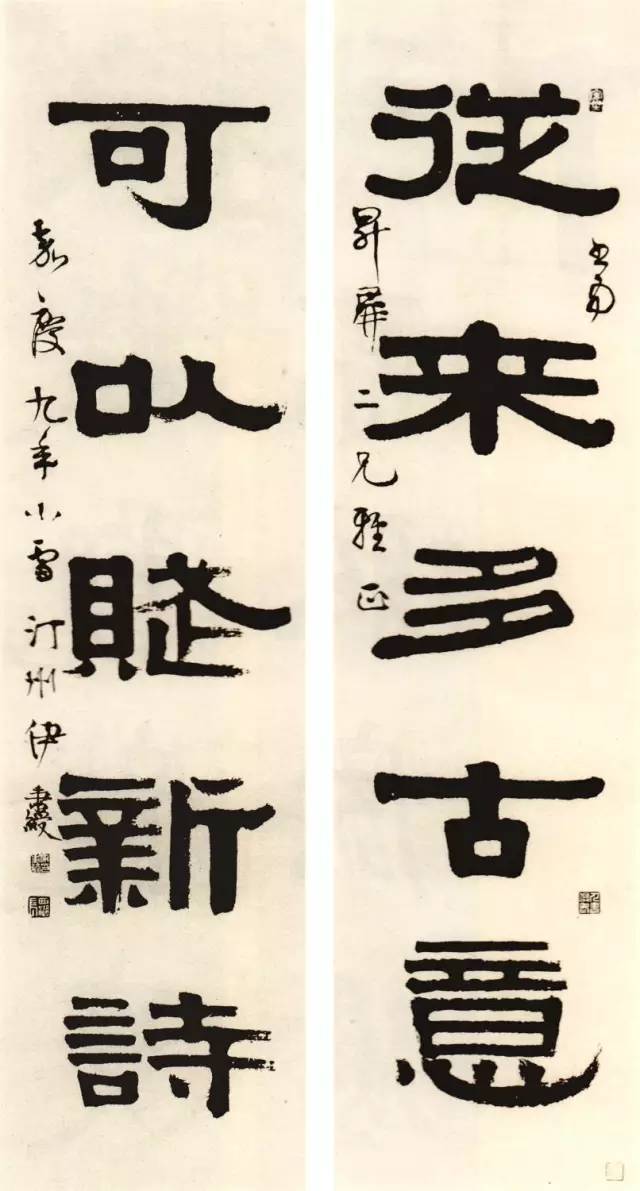 從來多古意
昇屏二兄雅正
可以賦新詩
嘉慶九年小雪汀州伊秉綬